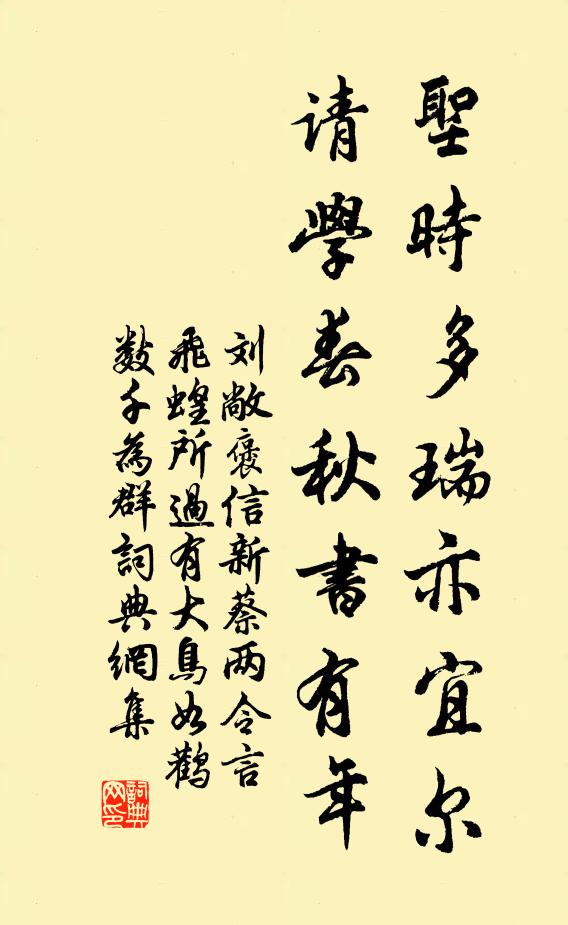 聖時多瑞亦宜尔
请學春秋書有年
刘敞褒信新蔡两令言
飛蝗所過有大鳥如鹳
数千為群詞典網集
詞典网印